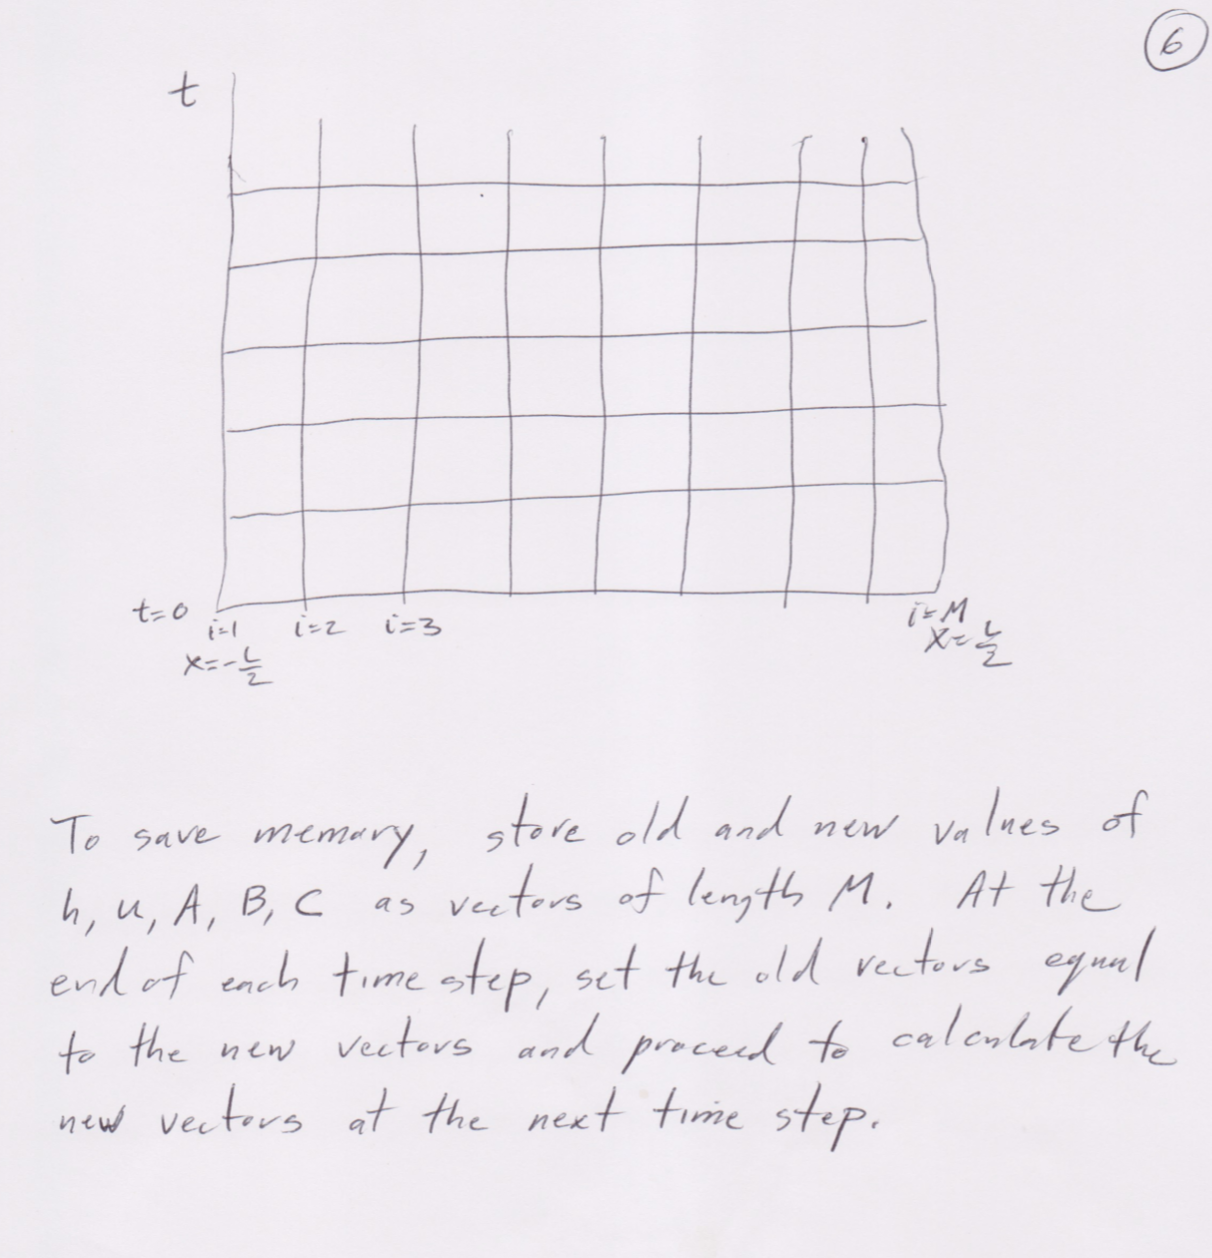 6
t
t=0
i=1 i=2 i=3 i=M
x=-L/2 x=L/2
To save memory, store old and new values of
h, u, A, B, C as vectors of length M. At the
end of each time step, set the old vectors equal
to the new vectors and proceed to calculate the
new vectors at the next time step.